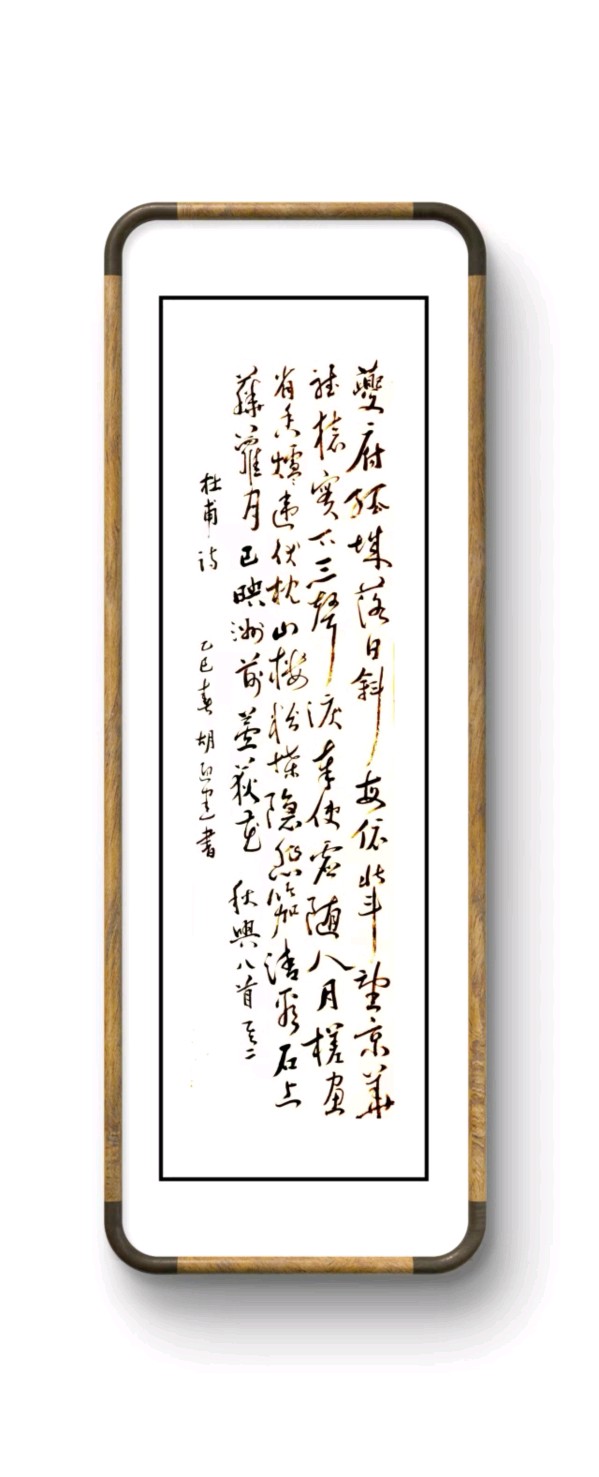 夔府孤城落日斜每依北斗望京華
聽猿實下三聲淚奉使虛隨八月槎畫
省香爐違伏枕山樓粉堞隱悲笳請看石上
藤蘿月已映洲前蘆荻花 秋興八首其二
杜甫詩 乙巳春胡迎建書